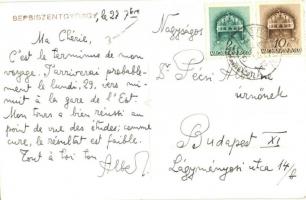 SEPSISZENTGYÖRGY, le 28 7bre
Ma Chérie,
C'est le terminus de mon
voyage. J'arriverai probable-
ment le lundi, 29, vers mi-
nuit à la gare de l'Est.
Mon tour a bien réussi au
point de vue des études; comme
cure, le résultat est faible.
Tout à toi ton
Nagyságos
úrnőnek
Budapest XI
Lágymányosi utca 14/b
MAGYARORSZÁG
10
MAGYARORSZÁG